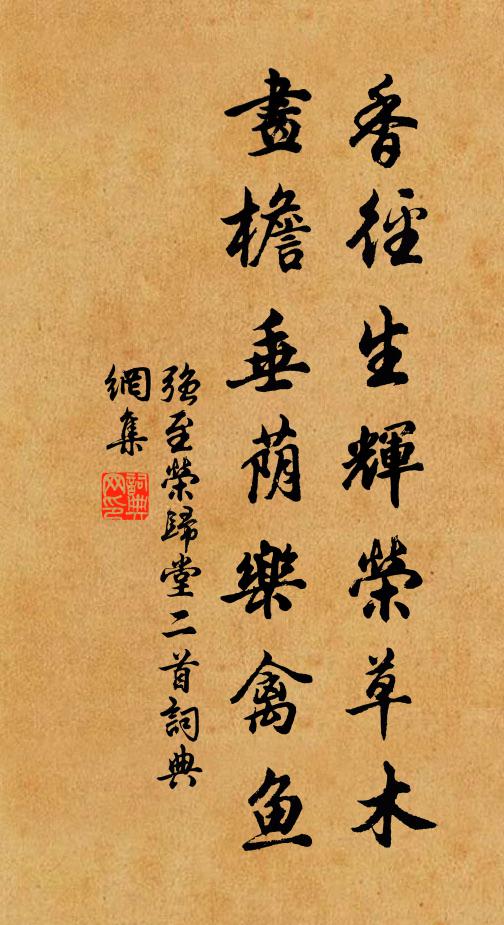 香徑生輝榮草木
畫檐垂荫樂禽魚
强至榮歸堂二首詞典
網集
詞典
网印